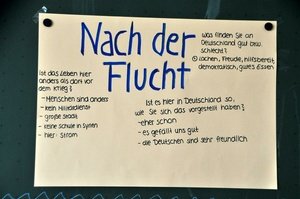 Nach der
Flucht
was finden Sie an
Deutschland gut bzw.
schlecht?
☺ lachen, Freude, hilfsbereit,
demokratisch, gutes Essen
Ist das Leben hier
anders als dort vor
dem Krieg?
- Menschen sind anders
- kein Militärdienst
- große Stadt
- keine Schule in Syrien
- hier: Strom
Ist es hier in Deutschland so,
wie Sie sich das vorgestellt haben?
- eher schon
- es gefällt uns gut
- die Deutschen sind sehr freundlich